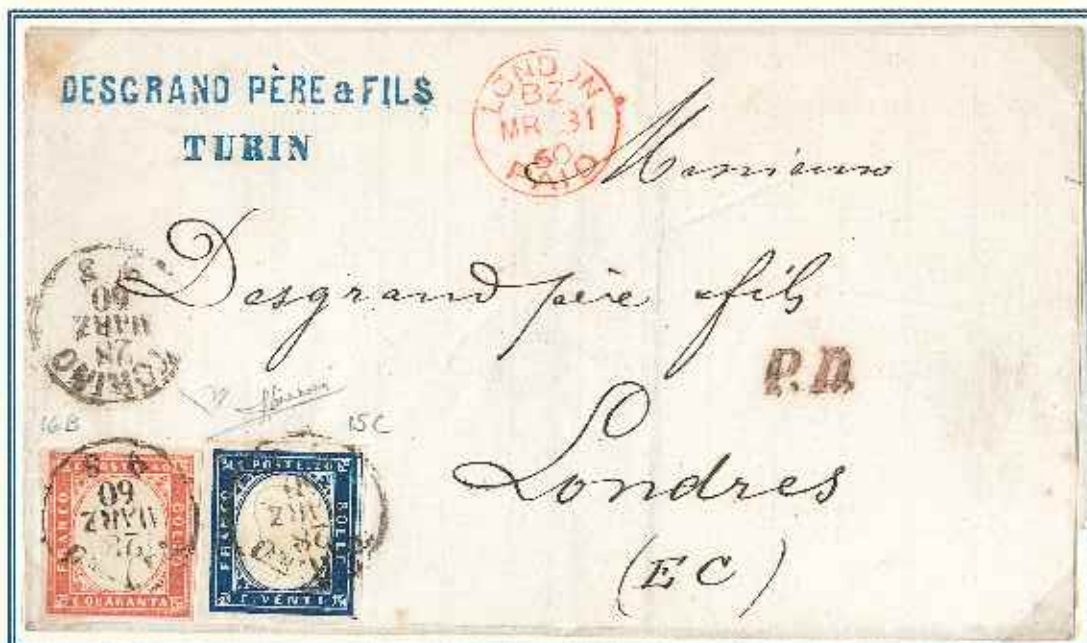 DESGRAND PÈRE & FILS
TURIN
LONDON
BZ
MR 31
60
PAID
Monsieur
Desgrand père fils
P.D.
Londres
(EC)
TORINO
28
MARZ
60
9 S
16B
15C
FRANCO
BOLLO
C. QUARANTA
28
MARZ
60
9 S
POSTE C. 20
FRANCO
BOLLO
C. VENTI